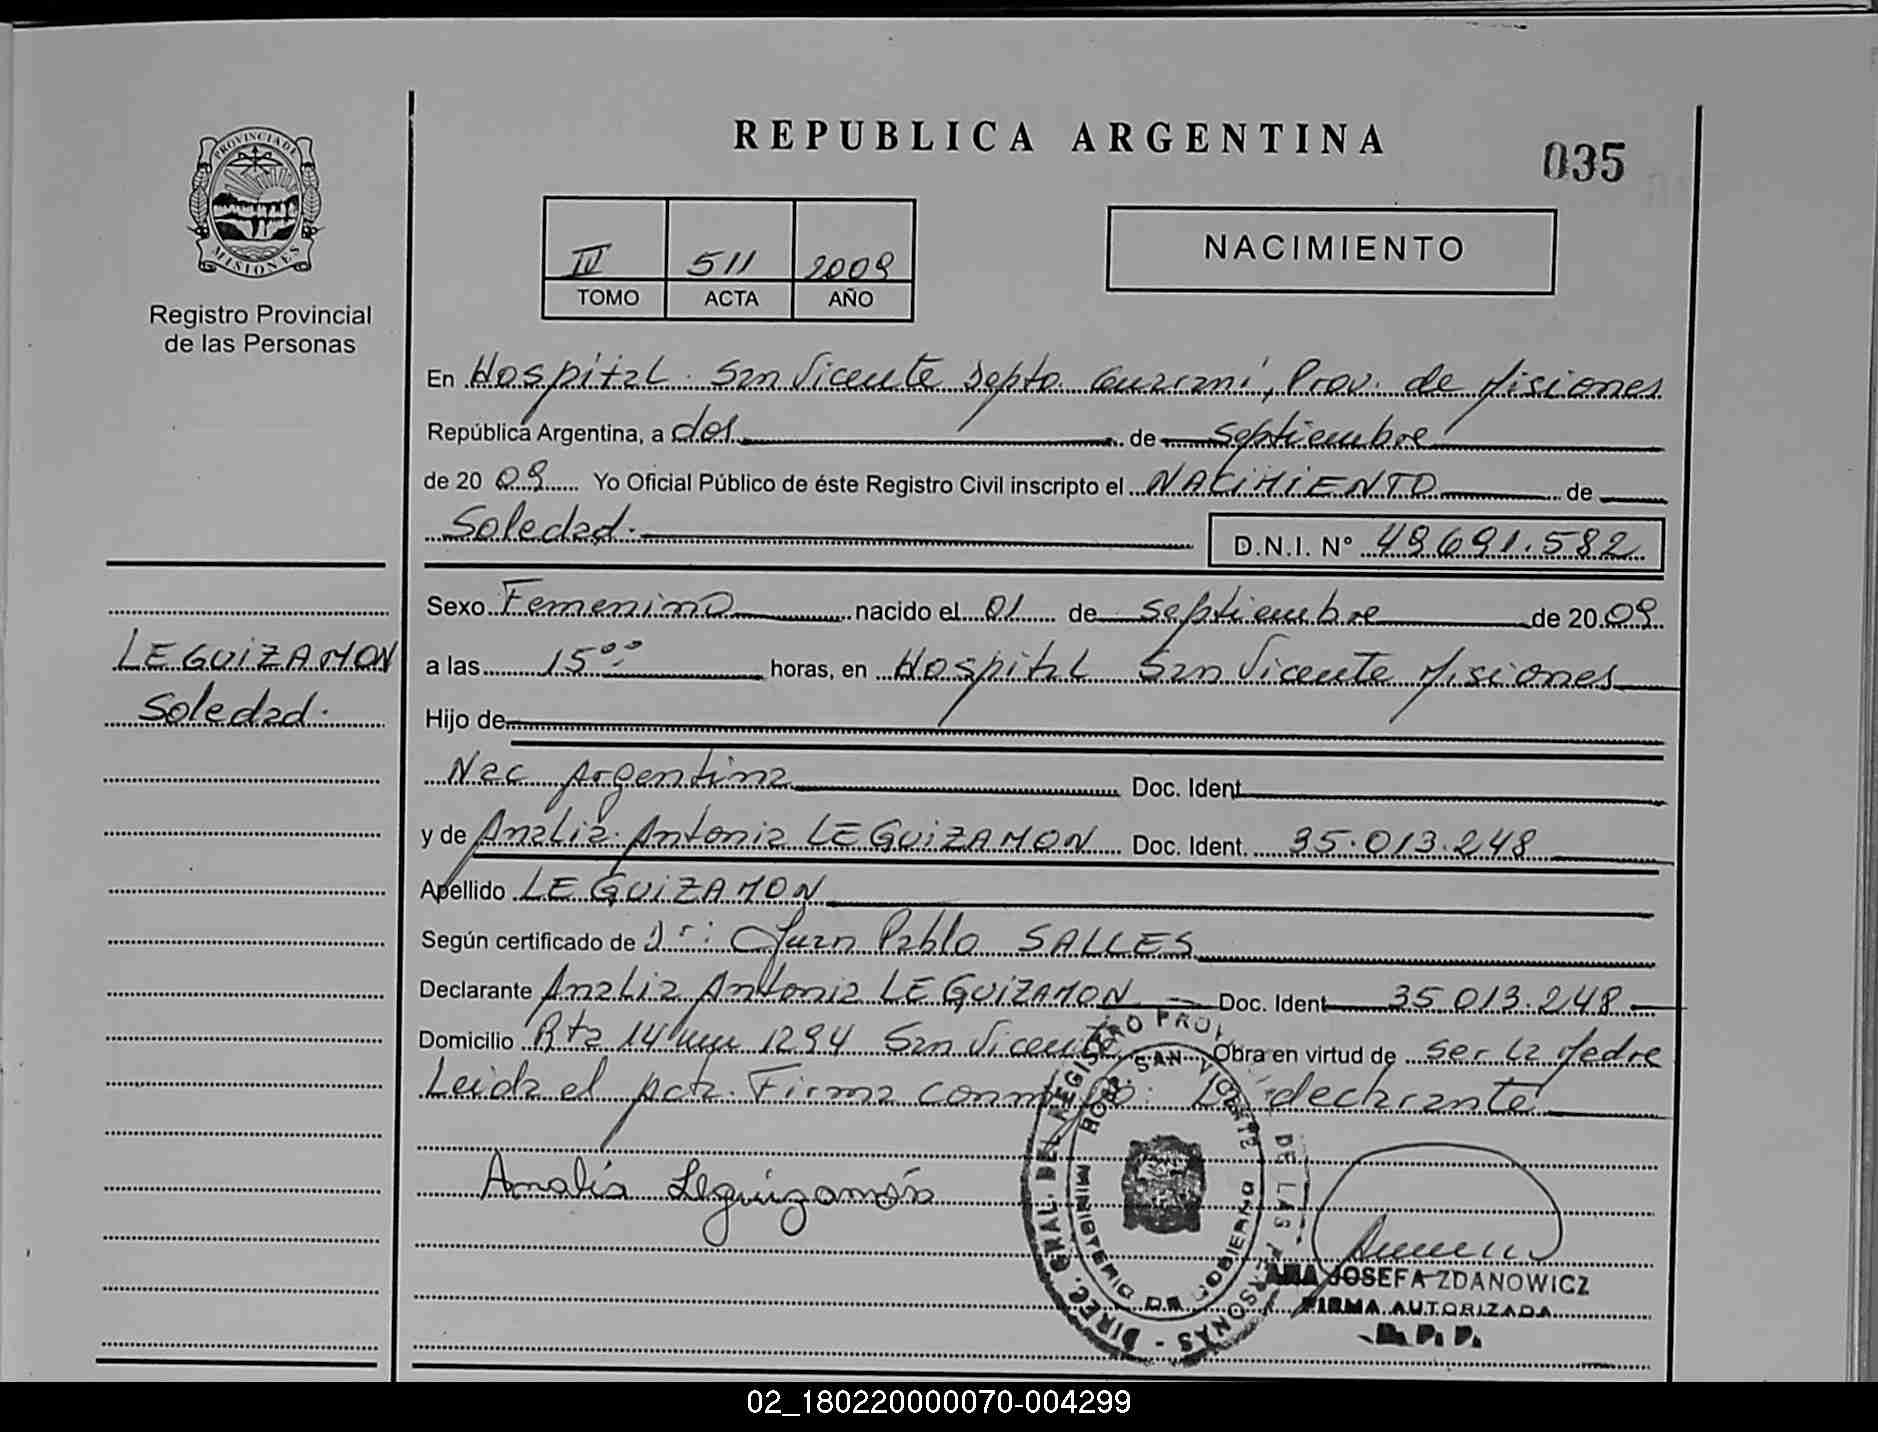 REPUBLICA ARGENTINA
035
PROVINCIA DE
MISIONES
Registro Provincial
de las Personas
IV 511 2009
TOMO ACTA AÑO
NACIMIENTO
En Hospital San Vicente Depto. Guaraní, Prov. de Misiones
República Argentina, a dos de septiembre
de 2009 Yo Oficial Público de éste Registro Civil inscripto el NACIMIENTO de
Soledad. D.N.I. Nº 49691.582
LEGUIZAMON
Soledad.
Sexo Femenino nacido el 01 de septiembre de 2009
a las 15°° horas, en Hospital San Vicente Misiones
Hijo de
Nac Argentina Doc. Ident
y de Analia Antonia LEGUIZAMON Doc. Ident. 35.013.248
Apellido LEGUIZAMON
Según certificado de Dr: Juan Pablo SALLES
Declarante Analia Antonia LEGUIZAMON Doc. Ident 35.013.248
Domicilio Rta 14 1294 San Vicente Obra en virtud de ser la Madre
Leida el acta. Firma conmigo: La declarante
Analía Leguizamón
DIREC. GRAL. DEL REGISTRO PROV. DE LAS PERSONAS
HOSP. SAN VICENTE
MINISTERIO DE GOBIERNO
ANA JOSEFA ZDANOWICZ
FIRMA AUTORIZADA
02_180220000070-004299